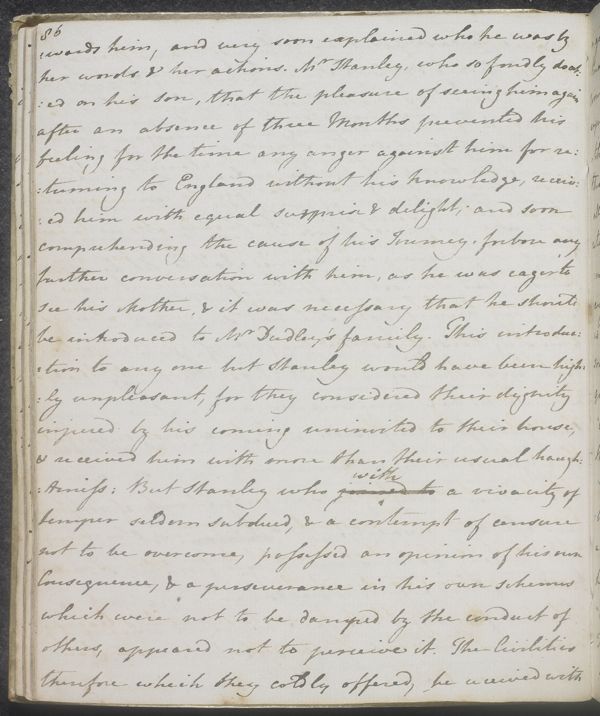 86
:wards him, and very soon explained who he was by
her words & her actions. Mr Stanley, who so fondly doat:
:ed on his son, that the pleasure of seeing him again
after an absence of three Months prevented his
feeling for the time any anger against him for re:
:turning to England without his knowledge, receiv:
:ed him with equal surprise & delight; and soon
comprehending the cause of his Journey, forbore any
further conversation with him, as he was eager to
see his Mother, & it was necessary that he should
be introduced to Mr Dudley's family. This introduc:
:tion to any one but Stanley would have been high:
:ly unpleasant, for they considered their dignity
injured by his coming uninvited to their house,
& received him with more than their usual haugh:
:tiness: But Stanley who with joined to a vivacity of
temper seldom subdued, & a contempt of censure
not to be overcome, possessed an opinion of his own
Consequence, & a perseverance in his own schemes
which were not to be damped by the conduct of
others, appeared not to perceive it. The Civilities
therefore which they coldly offered, he received with